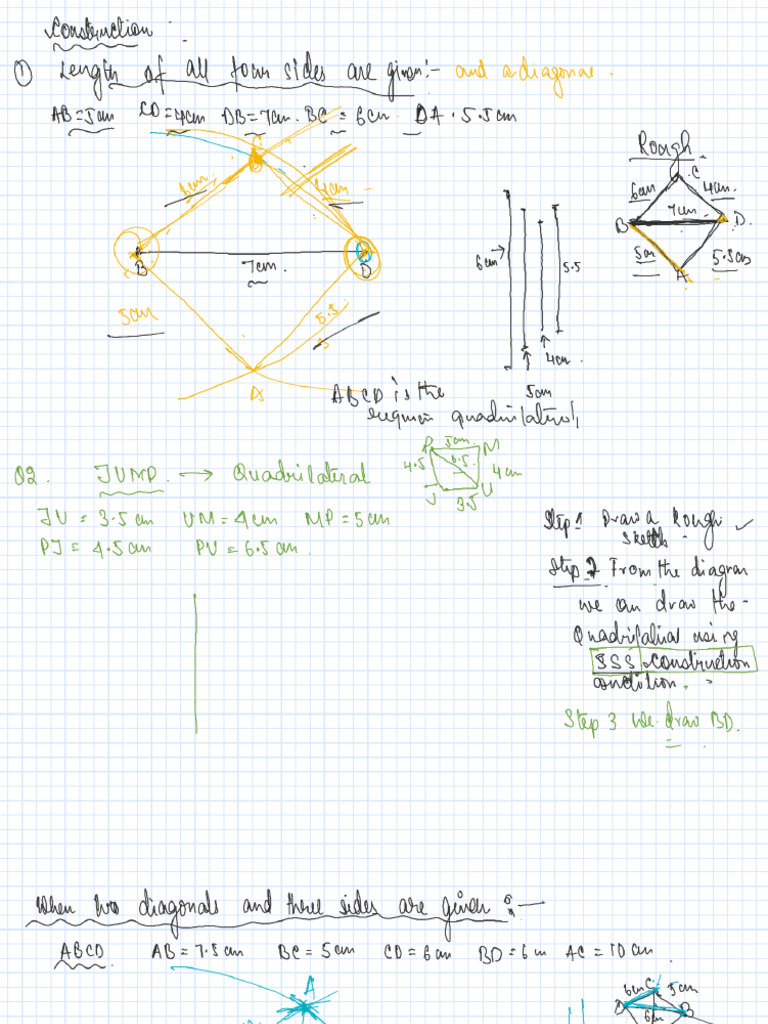 Construction
① Length of all four sides are given:- and a diagonal.
AB=5cm CD=4cm DB=7cm. BC = 6cm. DA. 5.5cm
Rough
C
6cm
4cm
B
7cm.
D
5cm
5.5
A
6cm
5.5
4cm.
5cm
C
6cm
4cm.
7cm
B
D.
5cm
5.5cm
A
ABCD is the
quadrilateral,
Q2. JUMP. → Quadrilateral
P 5cm. M
4.5 6.5. 4cm
J 3.5 U
JU = 3.5cm UM=4cm MP=5cm
PJ= 4.5cm PU=6.5cm.
Step 1 Draw a Rough
Sketch
Step 2 From the diagram
we can draw the
Quadrilateral using
SSS construction
condition.
Step 3 We draw BD.
When two diagonals and three sides are given :-
ABCD AB=7.5cm BC=5cm CD=6cm BD=6m AC=10cm.
A
6cm C 5cm
D B
6cm